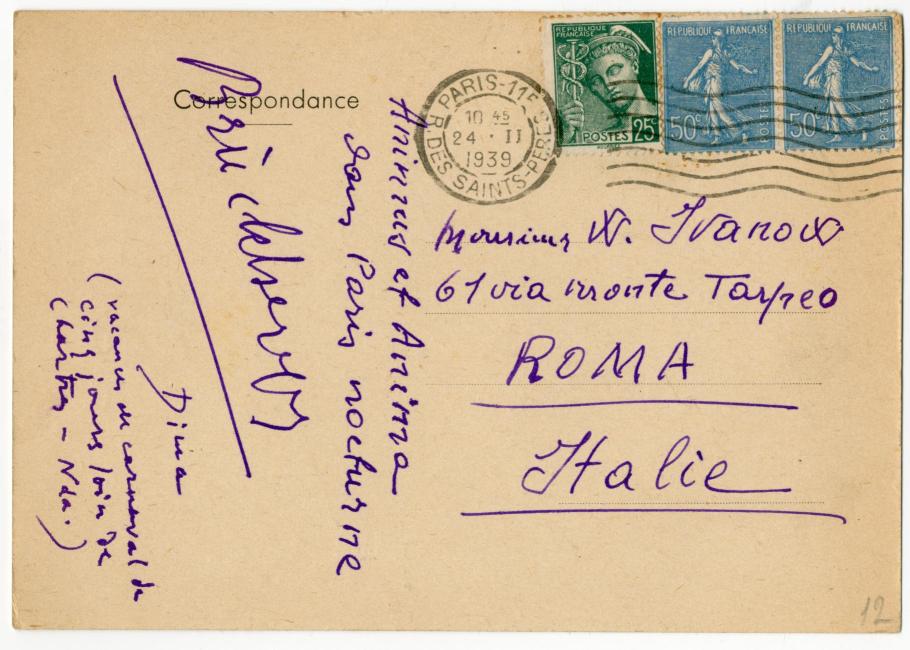 Correspondance
PARIS-11E
R. DES SAINTS-PERES
10 45
24 · II
1939
REPUBLIQUE
FRANÇAISE
POSTES
25c
REPUBLIQUE FRANÇAISE
50c
POSTES
REPUBLIQUE FRANÇAISE
50c
POSTES
Monsieur W. Ivanow
61 via monte Tarpeo
ROMA
Italie
Animus et Anima
dans Paris nocturne
Dima
(vacances de carnaval de
cinq jours loin de
Chartres – Nda.)
12